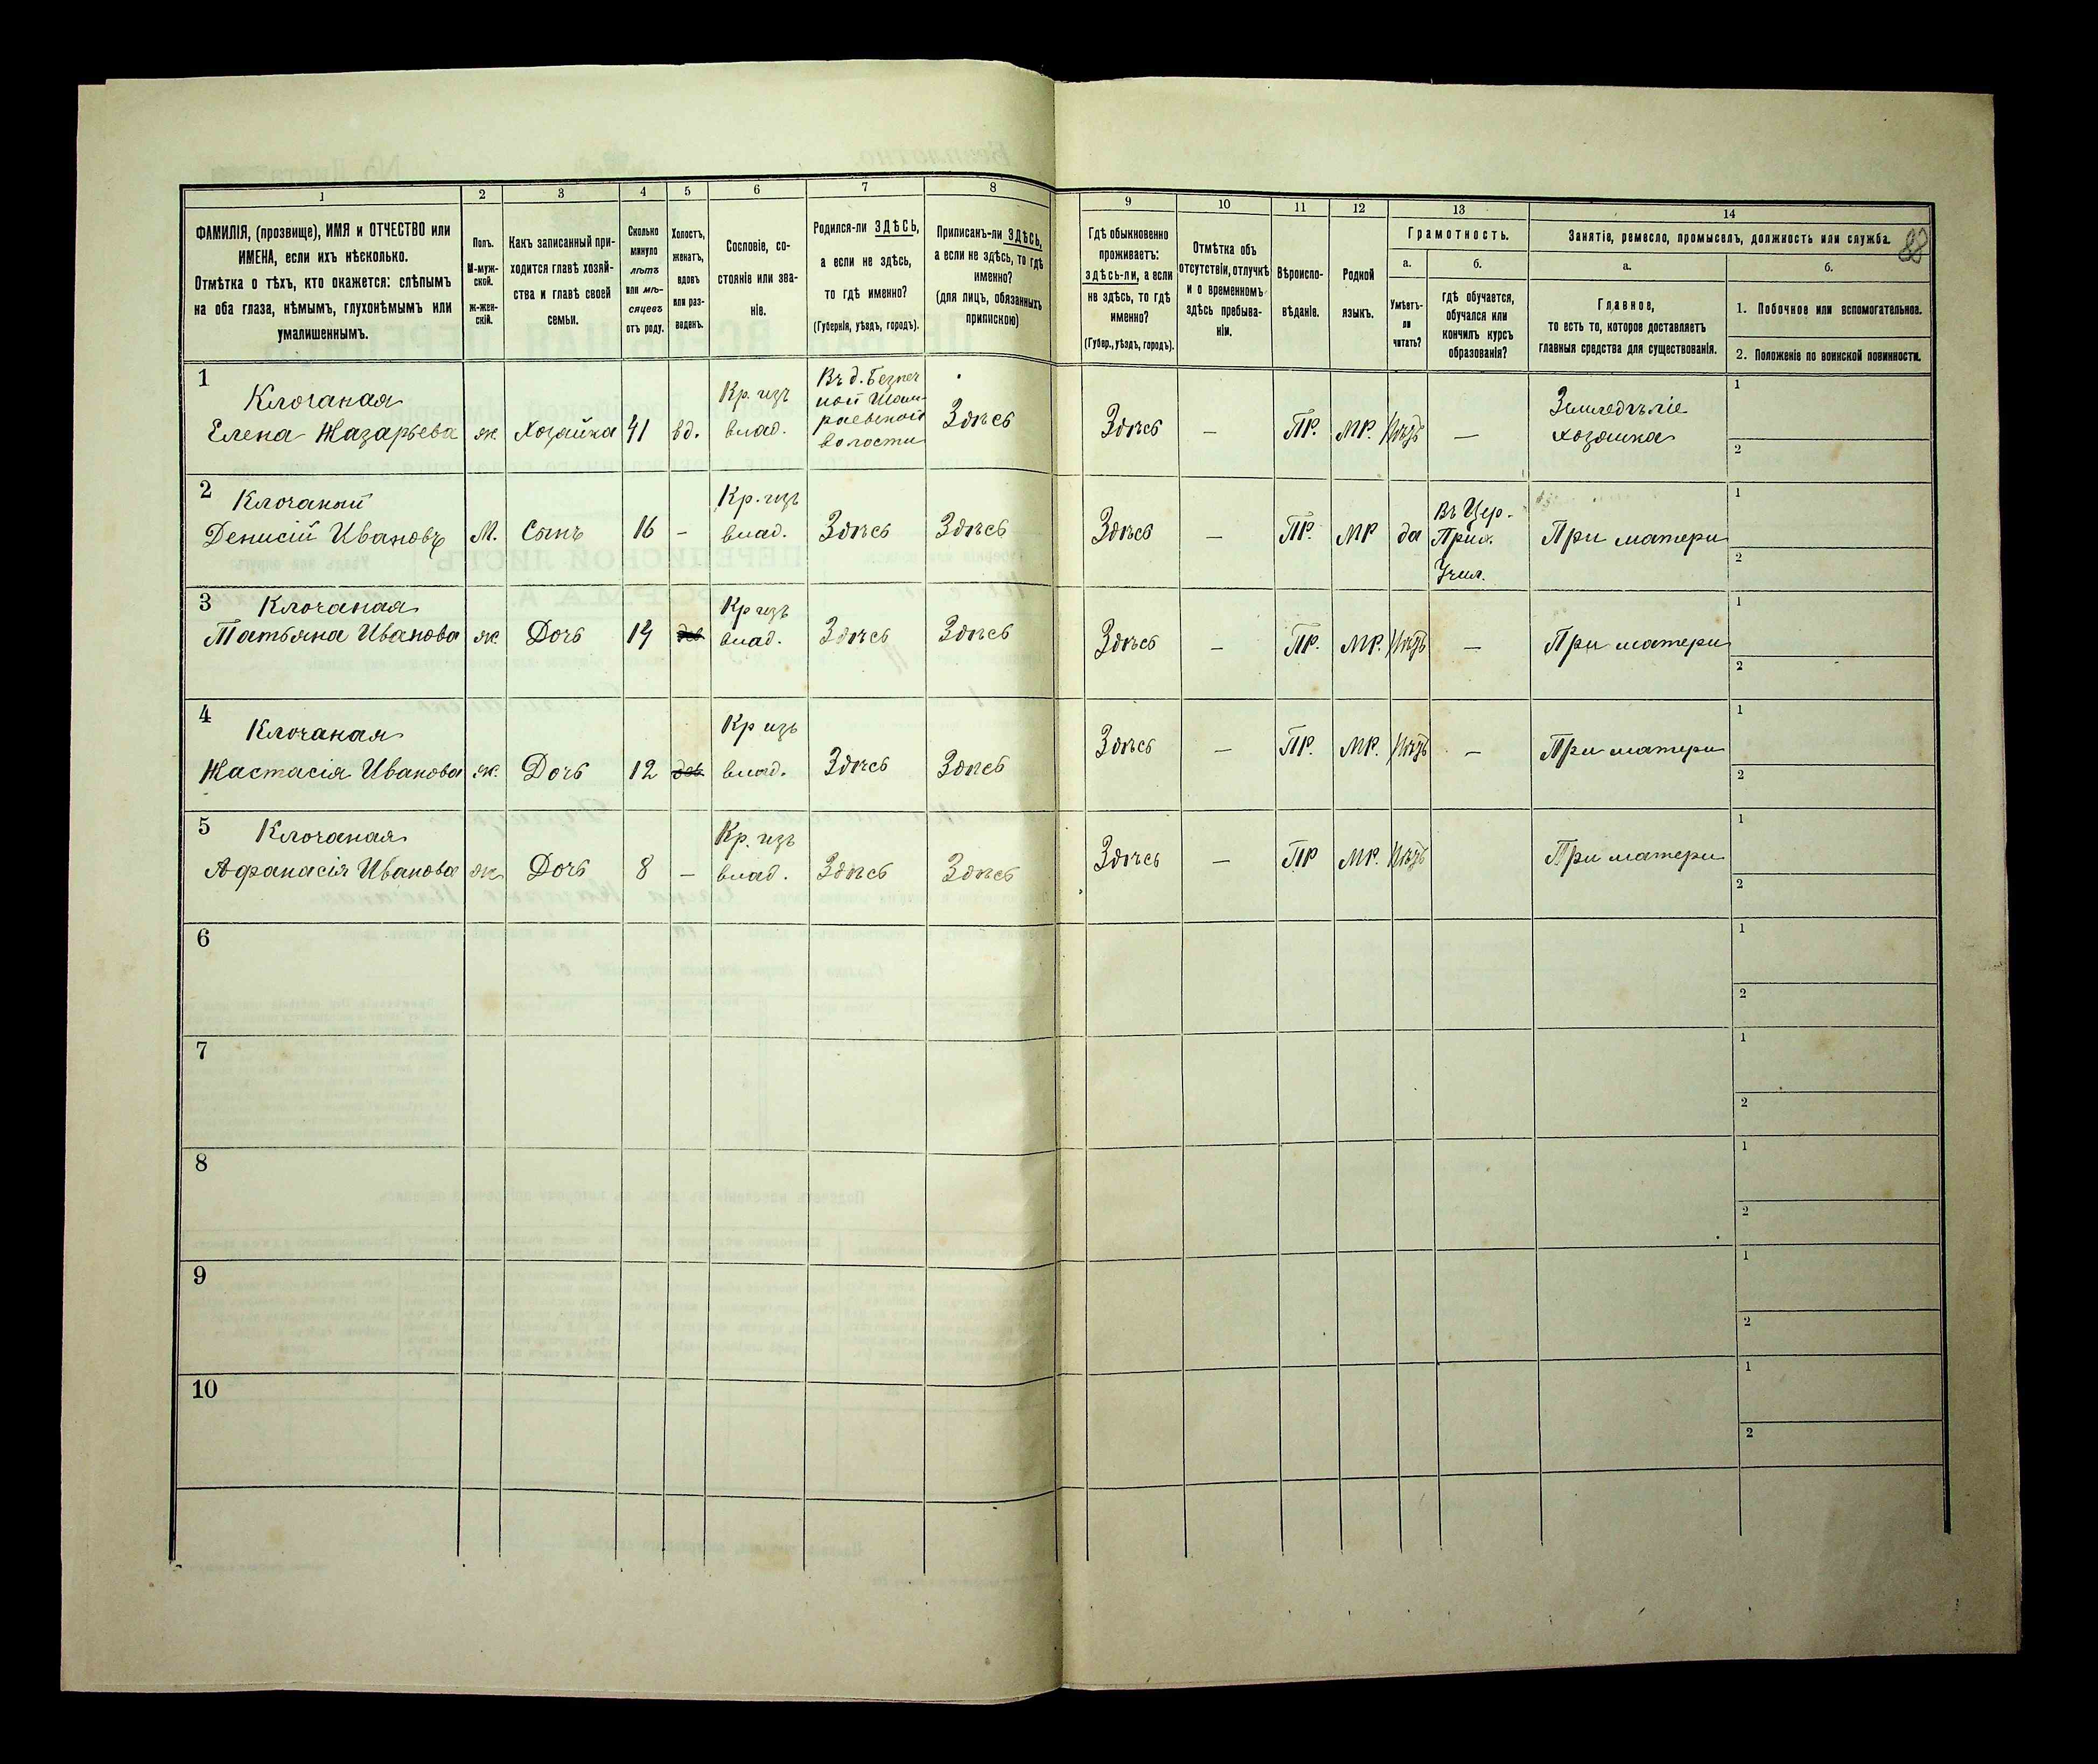 1
2
3
4
5
6
7
8
9
10
11
12
13
14
88
ФАМИЛІЯ, (прозвище), ИМЯ и ОТЧЕСТВО или
ИМЕНА, если ихъ нѣсколько.
Отмѣтка о тѣхъ, кто окажется: слѣпымъ
на оба глаза, нѣмымъ, глухонѣмымъ или
умалишеннымъ.
Полъ.
М-муж-
ской.
Ж-жен-
скій.
Какъ записанный при-
ходится главѣ хозяй-
ства и главѣ своей
семьи.
Сколько
минуло
лѣтъ
или мѣ-
сяцевъ
отъ роду.
Холостъ,
женатъ,
вдовъ
или раз-
веденъ.
Сословіе, со-
стояніе или зва-
ніе.
Родился-ли ЗДѢСЬ,
а если не здѣсь,
то гдѣ именно?
(Губернія, уѣздъ, городъ).
Приписанъ-ли ЗДѢСЬ,
а если не здѣсь, то гдѣ
именно?
(для лицъ, обязанныхъ
припискою)
Гдѣ обыкновенно
проживаетъ:
здѣсь-ли, а если
не здѣсь, то гдѣ
именно?
(Губер., уѣздъ, городъ).
Отмѣтка объ
отсутствіи, отлучкѣ
и о временномъ
здѣсь пребыва-
ніи.
Вѣроиспо-
вѣданіе.
Родной
языкъ.
Грамотность.
а.
Умѣетъ-
ли
читать?
б.
гдѣ обучается,
обучался или
кончилъ курсъ
образованія?
Занятіе, ремесло, промыселъ, должность или служба.
а.
Главное,
то есть то, которое доставляетъ
главныя средства для существованія.
б.
1. Побочное или вспомогательное.
2. Положеніе по воинской повинности.
1
Клочаная
Елена Назарьева
ж.
Хозяйка
41
вд.
Кр. изъ
влад.
Въ д. Безпеч
ной
волости
Здѣсь
Здѣсь
—
Пр.
Мр.
—
Земледѣліе
хозяйка
1
2
2
Клочаный
Денисій Ивановъ
М.
Сынъ
16
-
Кр. изъ
влад.
Здѣсь
Здѣсь
Здѣсь
—
Пр.
Мр
да
Въ Цер.
Прих.
Учил.
При матери
1
2
3
Клочаная
Татьяна Иванова
ж
Дочь
14
дѣв
Кр изъ
влад.
Здѣсь
Здѣсь
Здѣсь
—
Пр.
Мр.
—
При матери
1
2
4
Клочаная
Настасія Иванова
ж.
Дочь
12
дѣв.
Кр изъ
влад.
Здѣсь
Здѣсь
Здѣсь
—
Пр.
Мр.
—
При матери
1
2
5
Клочаная
Афанасія Иванова
ж
Дочь
8
—
Кр. изъ
влад.
Здѣсь
Здѣсь
Здѣсь
—
Пр
Мр.
При матери
1
2
6
1
2
7
1
2
8
1
2
9
1
2
10
1
2